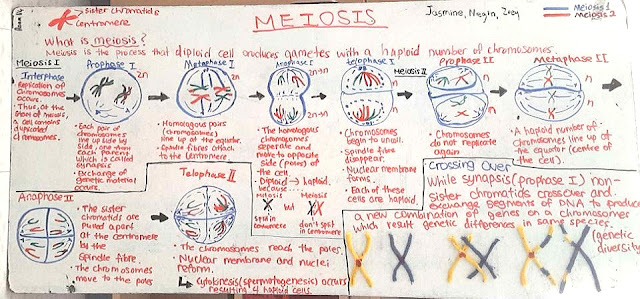 Sister chromatids
Centromere
MEIOSIS
Jasmine, Negin, Zoey
MEIOSIS 1
Meiosis 2
What is meiosis?
Meiosis is the process that diploid cell produces gametes with a haploid number of chromosomes.
Meiosis I
Interphase
Replication of
Chromosomes
occurs.
Thus, at the
start of meiosis,
a cell contains
duplicated
chromosomes.
Prophase I
2n
• Each pair of
chromosomes
line up side by
side, one from
each parent
which is called
synapsis.
• Exchange of
genetic material
occurs.
Metaphase I
2n
• Homologous pairs
(chromosomes)
line up at the equator.
• Spindle fibres attach
to the centromere.
Anaphase I
2n→n
2n→n
• The homologous
chromosomes
seperate and
move to opposite
side (poles) of
the cell.
• Diploid → haploid.
because...
Mitosis
but
Meiosis
split in
centromere
don't split
in centromere
telophase I
n
n
• Chromosomes
begin to uncoil.
• Spindle fibre
disappear.
• Nuclear membrane
forms.
• Each of these
cells are haploid.
Meiosis II
Prophase II
n
n
• Chromosomes
do not replicate
again
Metaphase II
n
n
• A haploid number of
chromosomes line up at
the equator (centre
of the cell)
Anaphase II
• The sister
chromatids are
pulled apart
at the centromere
by the
Spindle fibre.
• The chromosomes
move to the poles
Telophase II
• The chromosomes reach the poles.
• Nuclear membrane and nuclei
reform.
↳ Cytokinesis (spermatogenesis) occurs
resulting 4 haploid cells.
Crossing Over
While synapsis (prophase I) non-
sister chromatids crossover and
exchange segments of DNA to produce
a new combination of genes on a chromosome
which result genetic differences in same species.
(genetic
diversity)